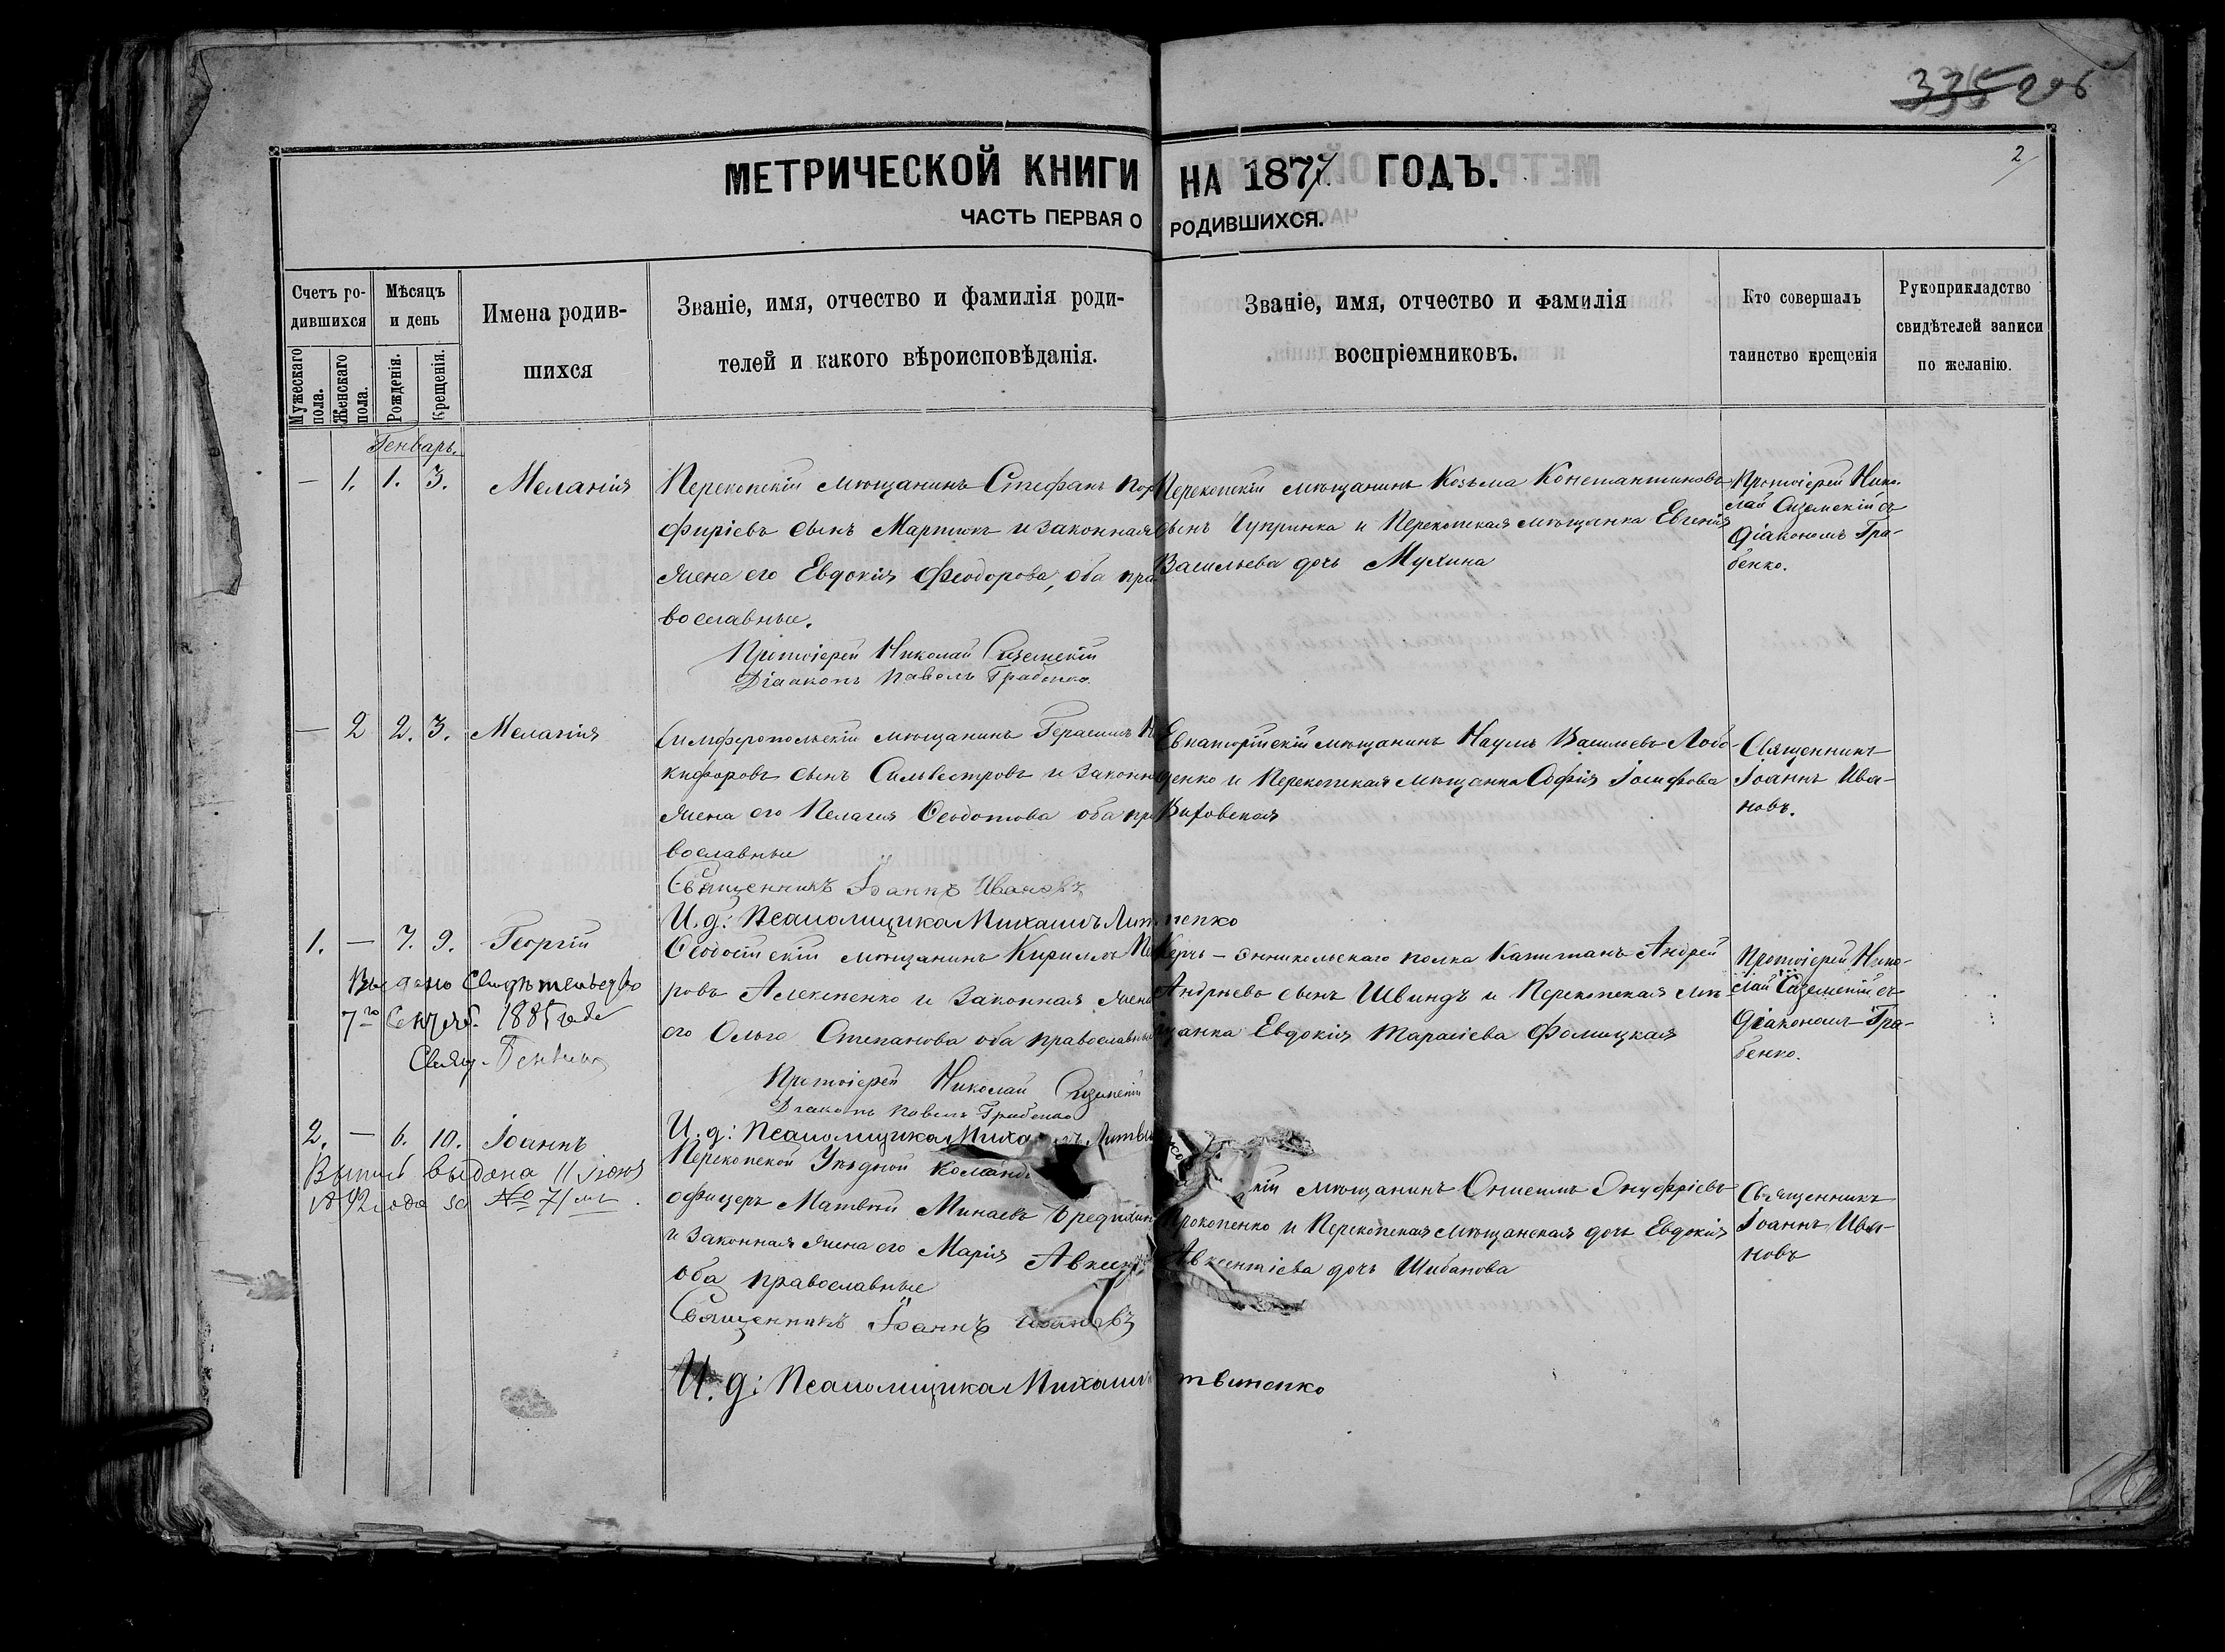 335 206
2
МЕТРИЧЕСКОЙ КНИГИ НА 1877 ГОДЪ.
ЧАСТЬ ПЕРВАЯ О РОДИВШИХСЯ.
Счетъ ро-
дившихся
Мужескаго
пола.
Женскаго
пола.
Мѣсяцъ
и день
Рожденія.
Крещенія.
Имена родив-
шихся
Званіе, имя, отчество и фамилія роди-
телей и какого вѣроисповѣданія.
Званіе, имя, отчество и фамилія
воспріемниковъ.
Кто совершалъ
таинство крещенія
Рукоприкладство
свидѣтелей записи
по желанію.
Генварь.
— 1. 1. 3. Меланія
Перекопскій мѣщанинъ Стефанъ Пор
фиріевъ сынъ Мартюкъ и законная
жена его Евдокія Феодорова, оба пра
вославные.
Протоіерей Николай
Діаконъ Павелъ Грабенко
Перекопскій мѣщанинъ Козьма Константиновъ
сынъ Чупринка и Перекопская мѣщанка Евгенія
Васильева дочь Мухина
Протоіерей Нико-
лай съ
Діакономъ Гра-
бенко.
— 2 2. 3. Меланія
Симферопольскій мѣщанинъ Герасимъ Ни
кифоровъ сынъ Сильвестровъ и законн
жена его Пелагия Ѳеодотова оба пра
вославные
Священникъ Іоаннъ Ивановъ
И. д: Псаломщика Михаилъ Литвиненко
Евпаторійскій мѣщанинъ Наумъ Васильевъ Лобо
ценко и Перекопская мѣщанка Софія Іосифова
Витовская
Священникъ
Іоаннъ Ива-
новъ.
1. — 7. 9. Георгій
Выдано Свидѣтельство
7го 1885 года
Свящ.
Ѳеодосійскій мѣщанинъ Кириллъ
ровъ Алексеенко и законная жена
его Ольга Степанова оба православные
Протоіерей Николай
Діаконъ Павелъ Грабенко
И. д: Псаломщика Михаилъ Литви
Керчь-Эникольскаго полка Капитанъ Андрей
Андреевъ сынъ Швиндъ и Перекопская мѣ
щанка Евдокія Тарасіева Фомицкая
Протоіерей Нико-
лай съ
Діакономъ Гра-
бенко.
2. — 6. 10. Іоаннъ
Выпись выдана 11 Іюня
1892 года за № 71мъ
Перекопской Уѣздной Команды
офицеръ Матвѣй Минаевъ Бредихин
и законная жена его Марія Авксен
оба православные
Священникъ Іоаннъ Ивановъ
И. д: Псаломщика Михаилъ твиненко
кій мѣщанинъ Онисимъ Онуфріевъ
Прокопенко и Перекопская мѣщанская дочь Евдокія
Авксентіева дочь Шибанова
Священникъ
Іоаннъ Ива-
новъ